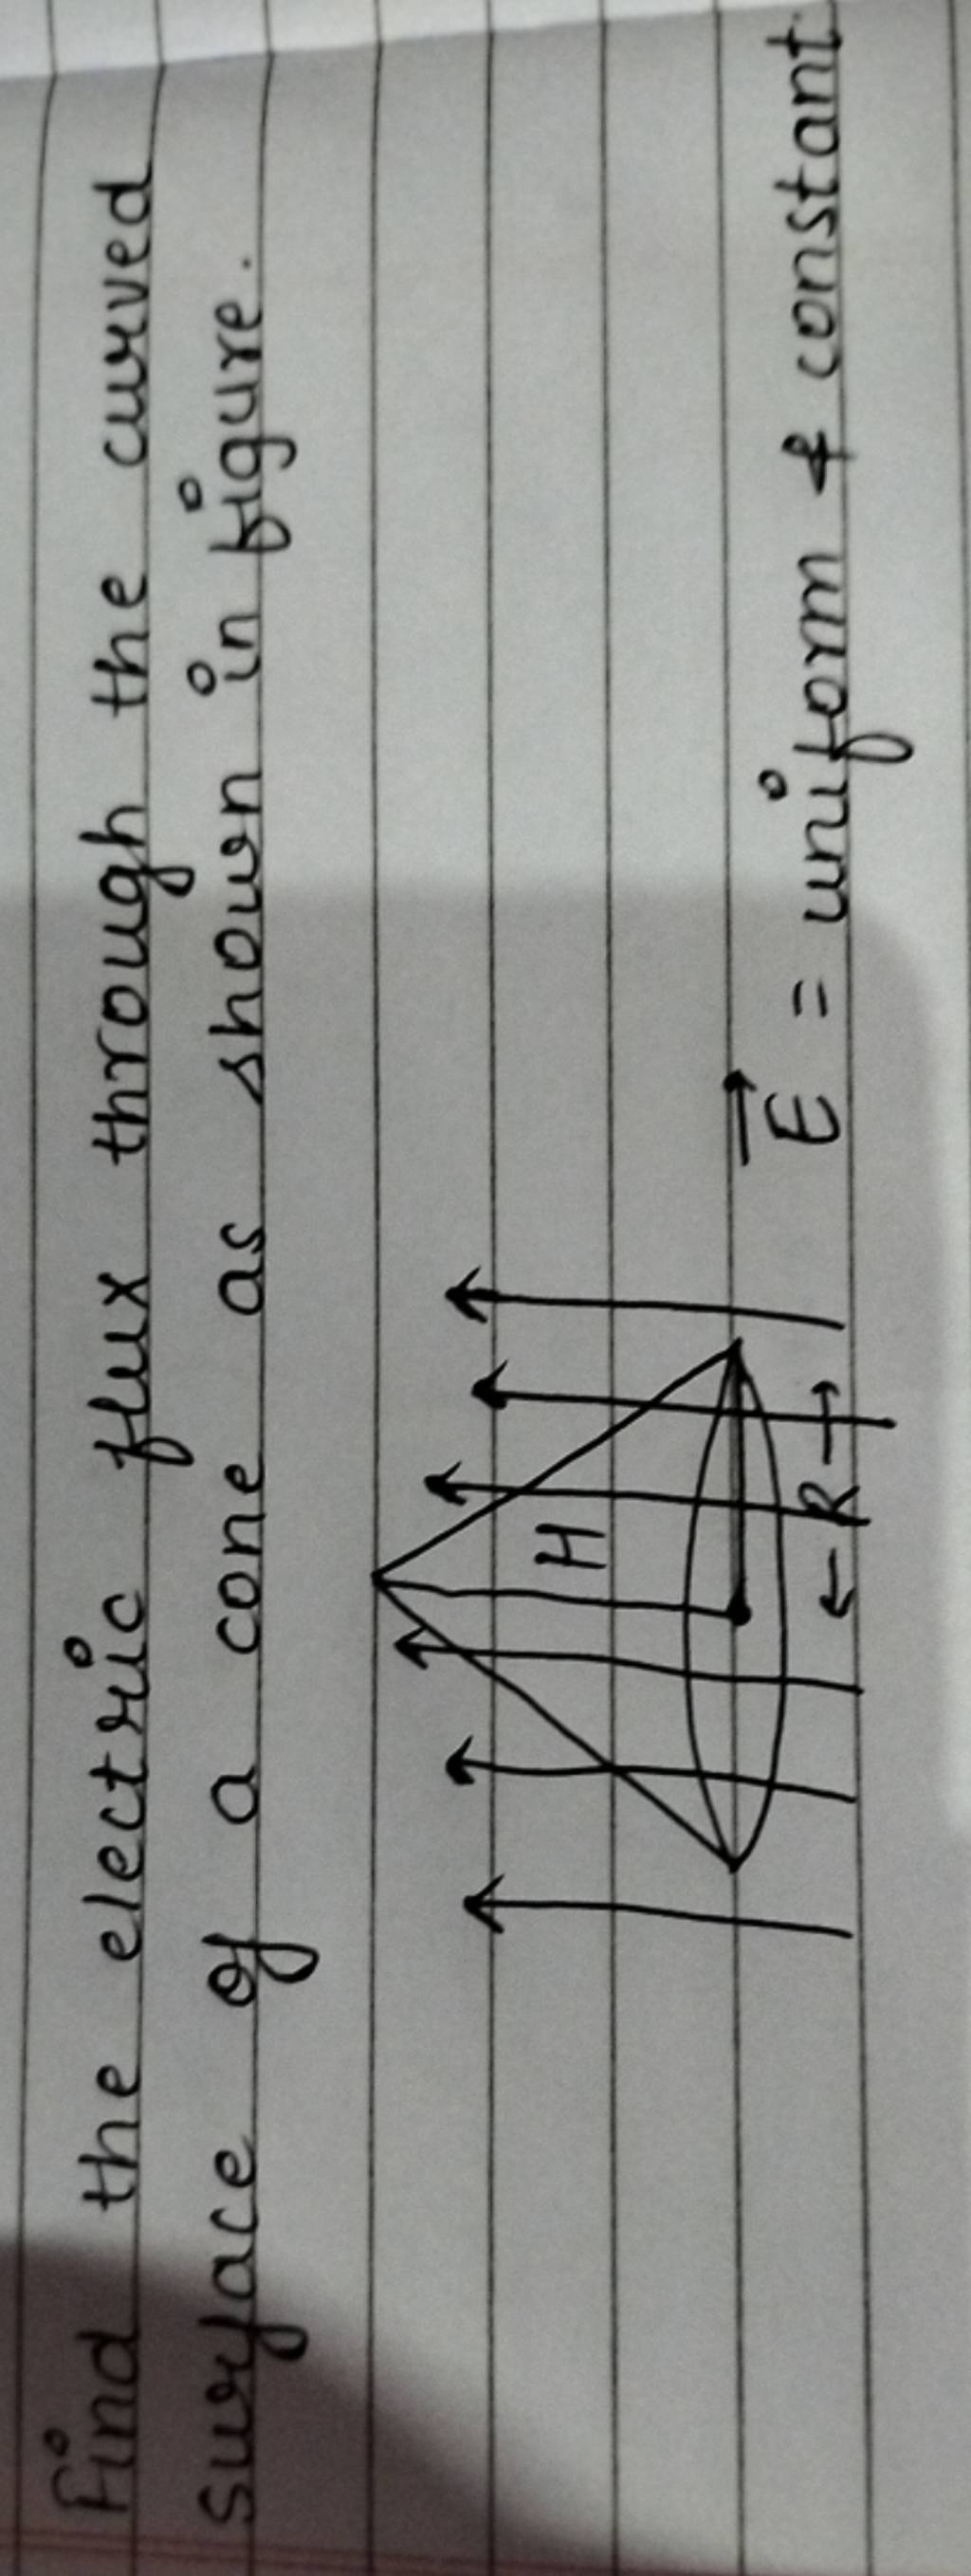 Find the electric flux through the curved
surface of a cone as shown in figure.
H
← R →
E⃗ = uniform & constant